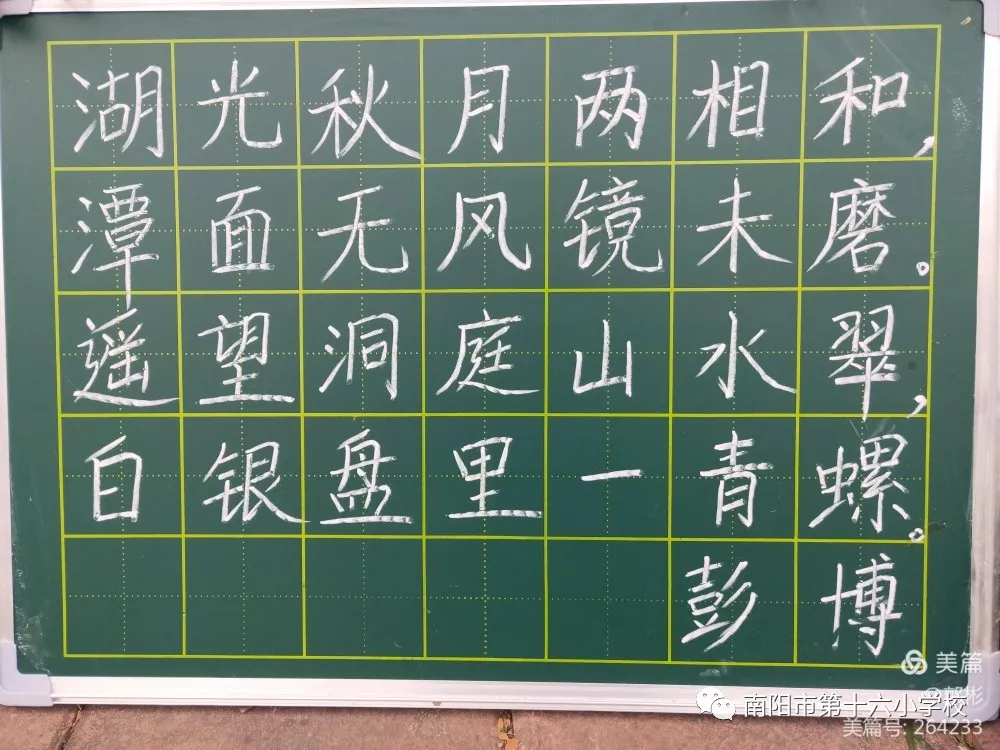 湖光秋月两相和，
潭面无风镜未磨。
遥望洞庭山水翠，
白银盘里一青螺。
彭博
美篇
南阳市第十六小学校
美篇号: 264233